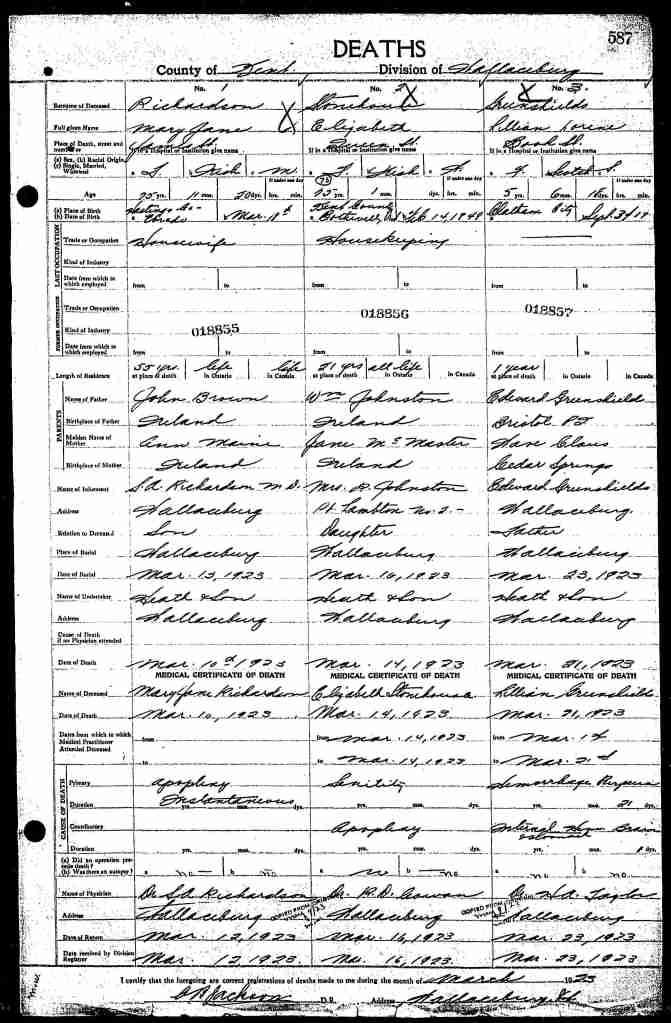 587
DEATHS
County of Kent Division of Wallaceburg
No. 1 No. 2 No. 3.
Surname of Deceased Richardson Stonehouse Greenshields
Full given Name Mary Jane Elizabeth Lillian Lorine
Place of Death, street and number St. Queen St. Book St.
If in a Hospital or Institution give name If in a Hospital or Institution give name If in a Hospital or Institution give name
(a) Sex, (b) Racial Origin, (c) Single, Married, Widowed F Irish M F Irish W. F Scotch S.
If under one day 75 If under one day If under one day
Age 75 yrs. 11 mos. 20 dys. hrs. min. 75 yrs. 1 mos. dys. hrs. min. 5 yrs. 6 mos. 18 dys. hrs. min.
(a) Place of Birth Hastings Co. Kent County Chatham
(b) Date of Birth Mar. Bothwell Feb 14, 1848 Sept 3
LAST OCCUPATION
Trade or Occupation Housewife Housekeeping
Kind of Industry
Date from which to which employed from to from to from to
Trade or Occupation
018855 018856 018857
Kind of Industry
Date from which to which employed from to from to
Length of Residence 55 yrs. life life 51 yrs all life 1 year
at place of death in Ontario in Canada at place of death in Ontario in Canada at place of death in Ontario in Canada
PARENTS
Name of Father John Brown Wm Johnston Edward Greenshields
Birthplace of Father Ireland Ireland Bristol
Maiden Name of Mother Ann Jane McMaster Claus
Birthplace of Mother Ireland Ireland Cedar Springs
Name of Informant S.A. Richardson M.D. Mrs. R. Johnston Edward Greenshields
Address Wallaceburg Pt Lambton No. 2.- Wallaceburg.
Relation to Deceased Son Daughter Father
Place of Burial Wallaceburg Wallaceburg Wallaceburg
Date of Burial Mar. 13, 1923 Mar. 16, 1923 Mar. 23, 1923
Name of Undertaker Heath & Son Heath & Son Heath & Son
Address Wallaceburg Wallaceburg Wallaceburg
Cause of Death if no Physician attended
Date of Death Mar. 10th 1923 Mar. 14, 1923 Mar. 21, 1923
MEDICAL CERTIFICATE OF DEATH MEDICAL CERTIFICATE OF DEATH MEDICAL CERTIFICATE OF DEATH
Name of Deceased Mary Jane Richardson Elizabeth Stonehouse Lillian Greenshields
Date of Death Mar. 10, 1923 Mar. 14, 1923 Mar. 21, 1923
Dates from which to which Medical Practitioner Attended Deceased from from Mar. 14, 1923 from Mar. 1st
to to Mar. 14, 1923 to Mar. 21st
CAUSE OF DEATH
Primary Apoplexy Senility Hemorrhage Purpura
Duration Instantaneous yrs. mos. dys. yrs. mos. dys. yrs. mos. 21 dys.
Contributory Apoplexy Internal Brain
Duration yrs. mos. dys. yrs. mos. dys. yrs. mos. dys.
(a) Did an operation precede death?
(b) Was there an autopsy? a b no. a no b no a b no.
Name of Physician Dr. S.A. Richardson Dr. R.D. Cowan Dr. Taylor
Address Wallaceburg Wallaceburg Wallaceburg
Date of Return Mar. 12, 1923 Mar. 16, 1923 Mar. 23, 1923
Date received by Division Registrar Mar. 12 1923 Mar. 16, 1923 Mar. 23, 1923
I certify that the foregoing are correct registrations of deaths made to me during the month of March 1923
Jackson D.R. Address Wallaceburg